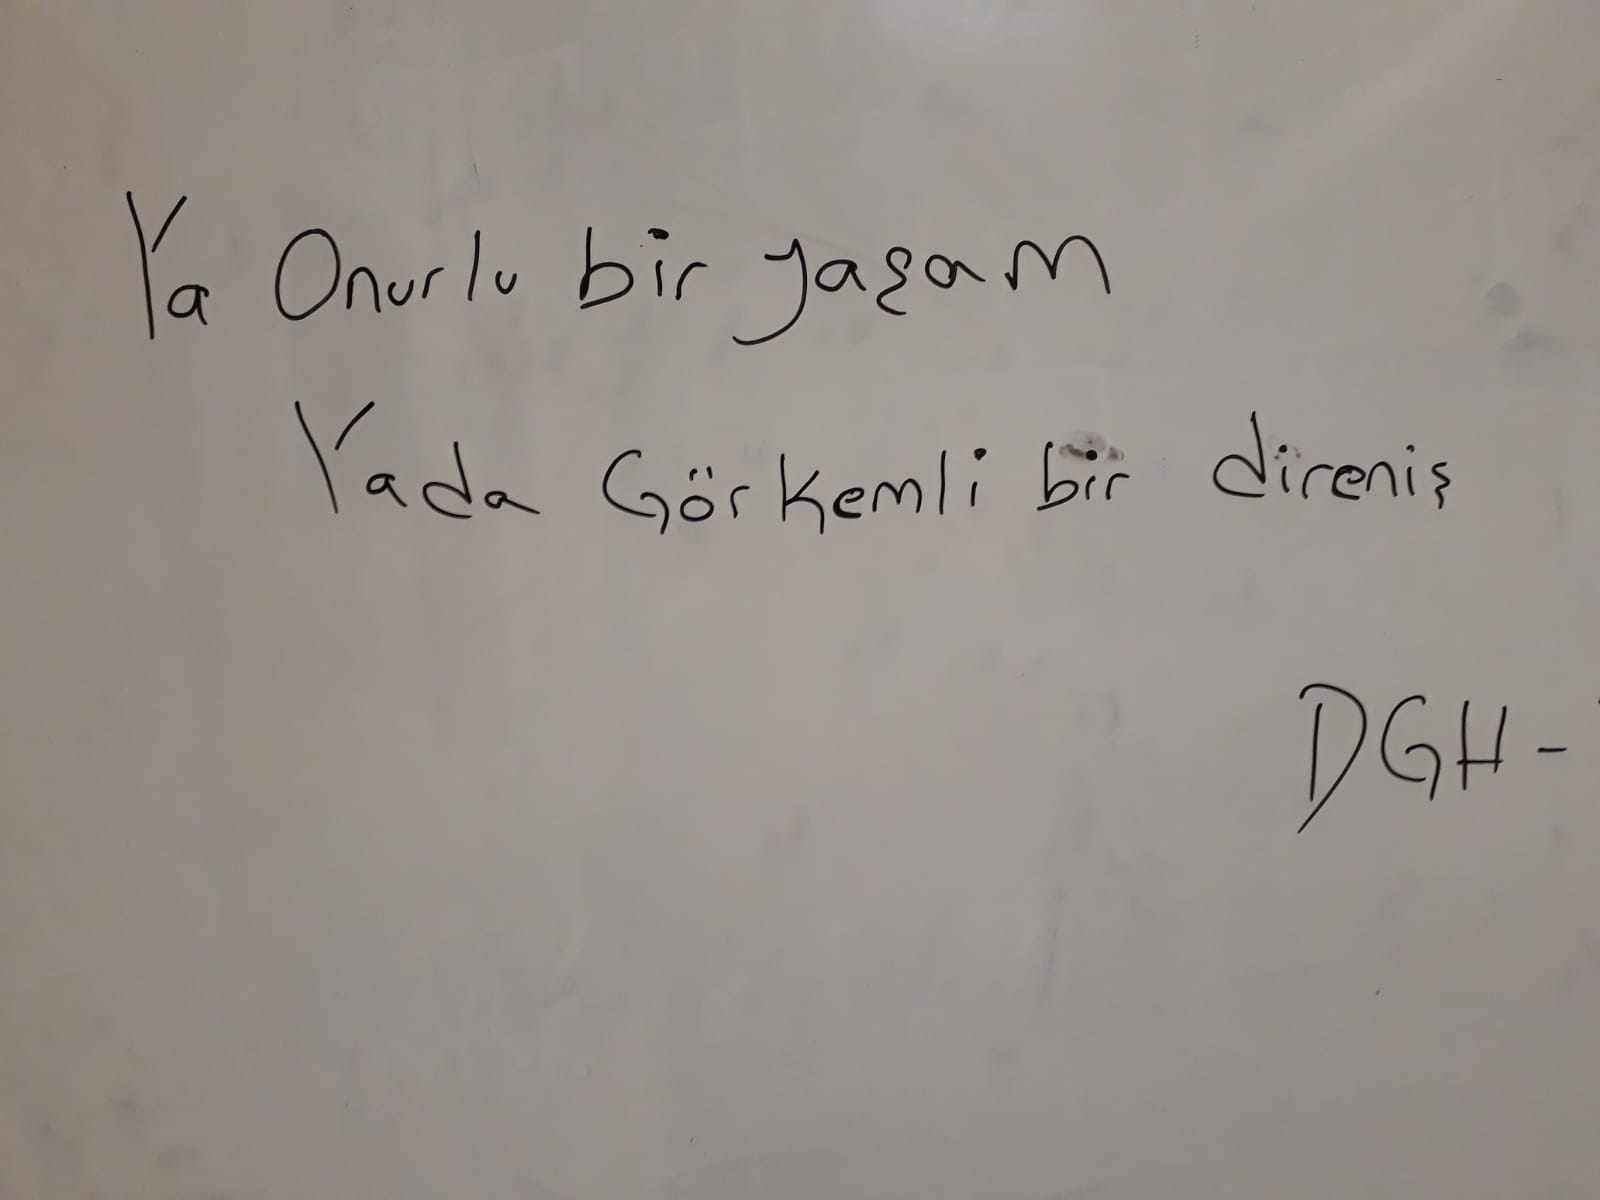 Ya Onurlu bir yaşam
Yada Görkemli bir direniş
DGH-